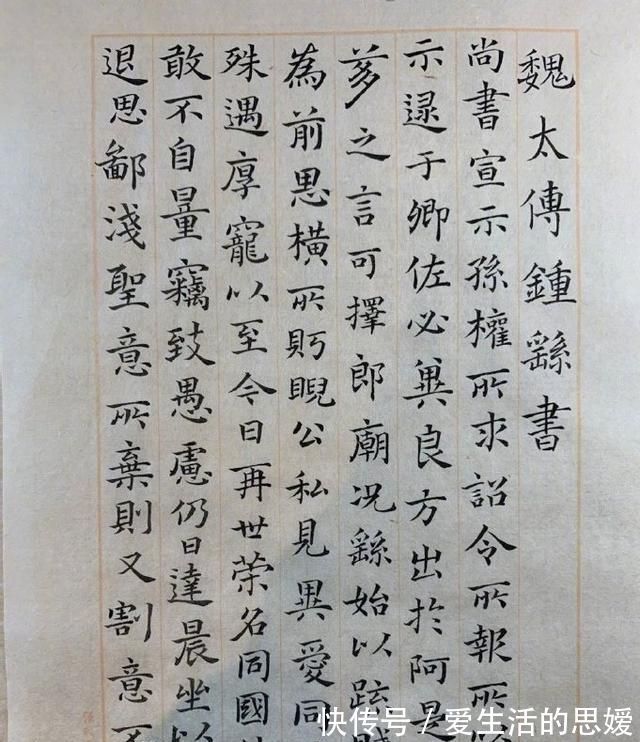 魏太傅鍾繇書
尚書宣示孫權所求詔令所報所
示逮于卿佐必冀良方出於阿是
芻之言可擇郎廟況繇始以疏賤
為前恩橫所眄睨公私見異愛同
殊遇厚寵以至今日再世榮名同國
敢不自量竊致愚慮仍日達晨坐以
退思鄙淺聖意所棄則又割意不
快传号/爱生活的思嫒